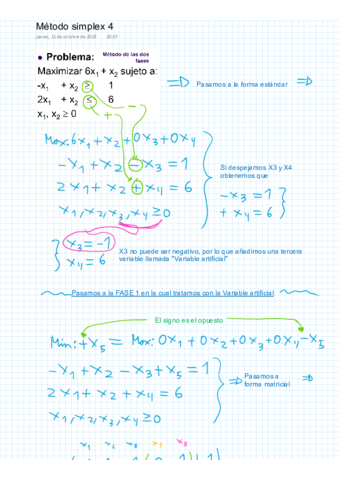 Método simplex 4
jueves, 11 de octubre de 2018
● Problema:
Método de las dos
fases
Maximizar 6x₁ + x₂ sujeto a:
-x₁ + x₂ ≥ 1
2x₁ + x₂ ≤ 6
x₁, x₂ ≥ 0
- +
⇒ Pasamos a la forma estándar ⇒
Max: 6x₁ + x₂ + 0x₃ + 0x₄
-x₁ + x₂ - x₃ = 1
2x₁ + x₂ + x₄ = 6
x₁, x₂, x₃, x₄ ≥ 0
Si despejamos X3 y X4
obtenemos que
-x₃ = 1
+x₄ = 6
x₃ = -1
x₄ = 6
X3 no puede ser negativo, por lo que añadimos una tercera
variable llamada "Variable artificial"
Pasamos a la FASE 1 en la cual tratamos con la Variable artificial
El signo es el opuesto
Min: +x₅ = Max: 0x₁ + 0x₂ + 0x₃ + 0x₄ - x₅
-x₁ + x₂ - x₃ + x₅ = 1
2x₁ + x₂ + x₄ = 6
x₁, x₂, x₃, x₄ ≥ 0
⇒ Pasamos a
forma matricial ⇒
x₁ x₂ x₃ x₄ x₅